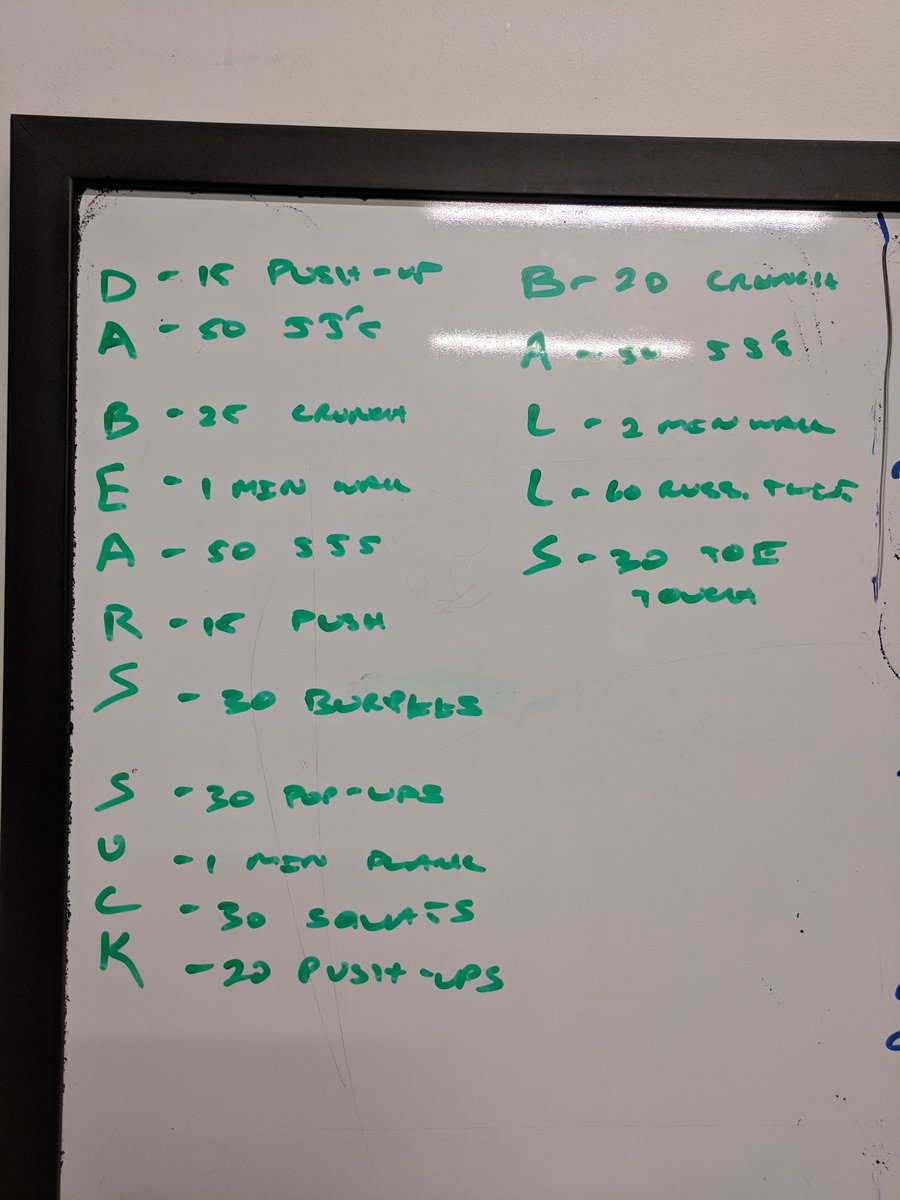 D - 15 PUSH-UP
A - 50 SSE
B - 25 CRUNCH
E - 1 MIN WALL
A - 50 SSS
R - 15 PUSH
S - 30 BURPEES
S - 30 POP-UPS
U - 1 MIN PLANK
C - 30 SQUATS
K - 20 PUSH-UPS
B - 20 CRUNCH
A - 50
L - 2 MIN WALL
L - 60 RUSS. TWIST
S - 30 TOE
TOUCH